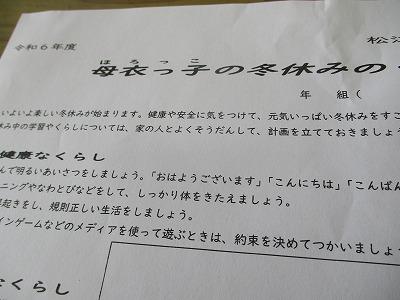 令和6年度
松江
ほろっこ
母衣っ子の冬休みの
年 組（
いよいよ楽しい冬休みが始まります。健康や安全に気をつけて、元気いっぱい冬休みをすご
休み中の学習やくらしについては、家の人とよくそうだんして、計画を立てておきましょう
健康なくらし
んで明るいあいさつをしましょう。「おはようございます」「こんにちは」「こんばん
ニングやなわとびなどをして、しっかり体をきたえましょう。
起きをし、規則正しい生活をしましょう。
インゲームなどのメディアを使って遊ぶときは、約束を決めてつかいましょ
なくらし